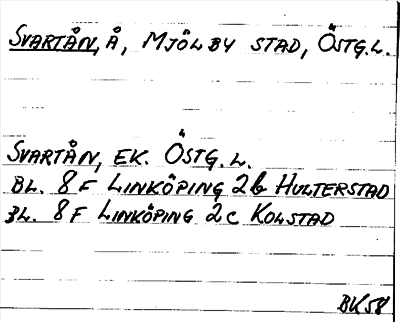 Svartån, å, Mjölby stad, Östg.l.
Svartån, ek. Östg.l.
Bl. 8F Linköping 2b Hulterstad
Bl. 8F Linköping 2c Kolstad
BK58